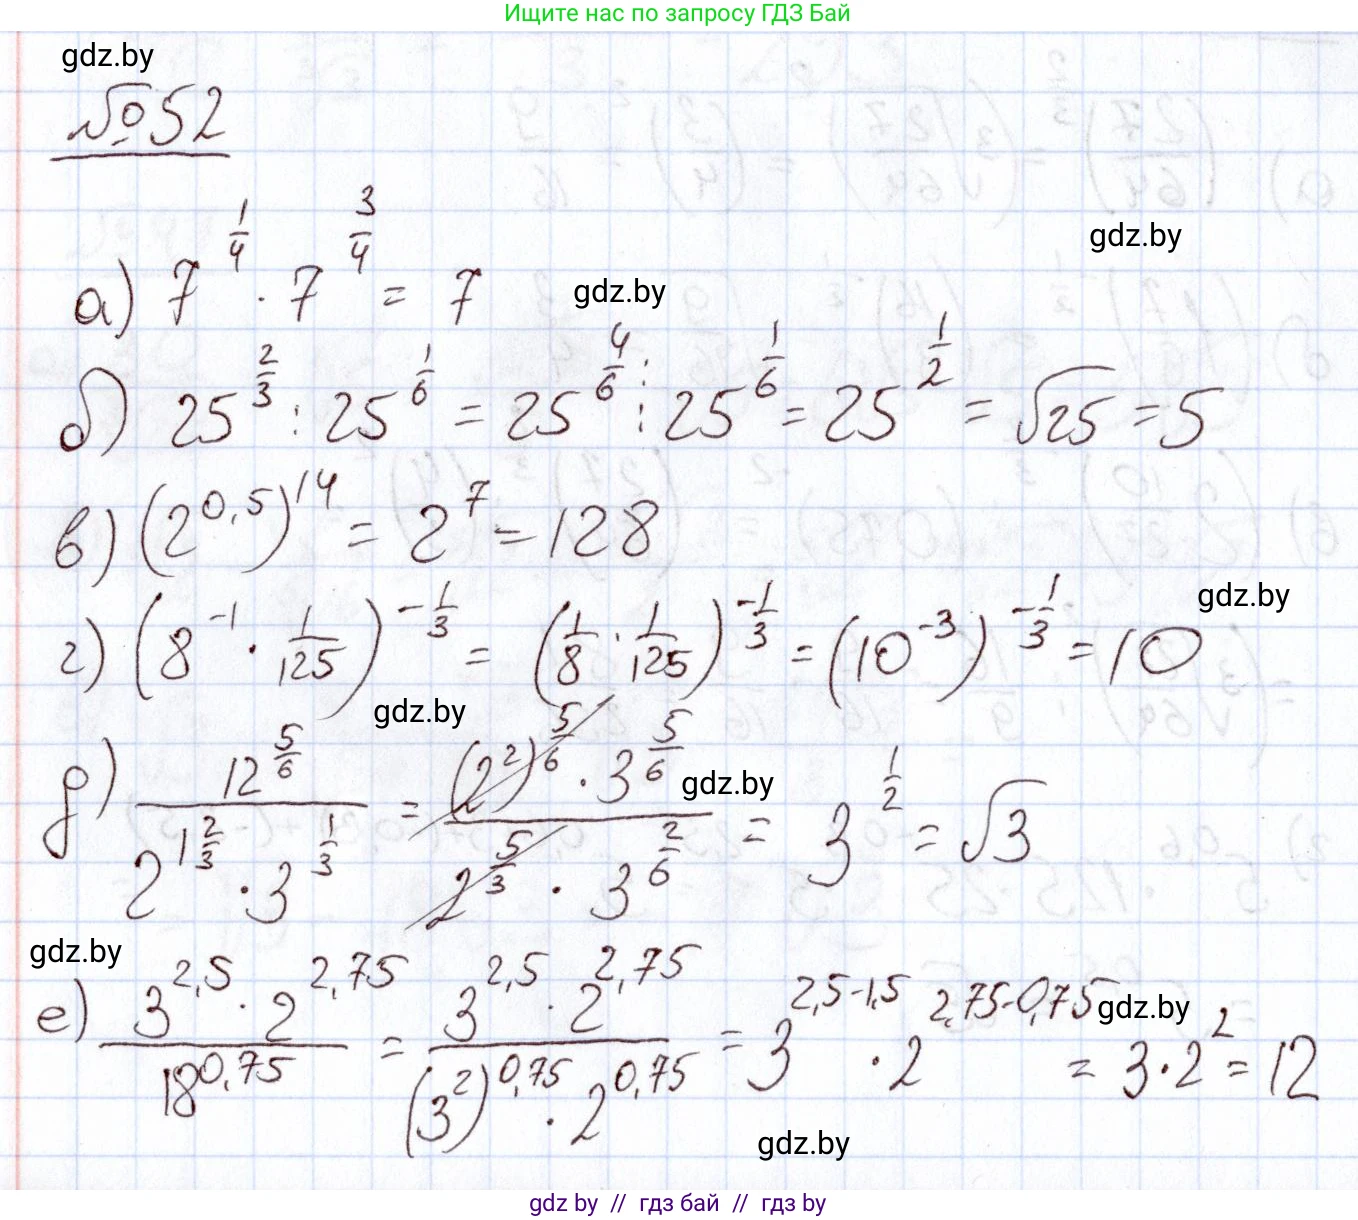 Ищите нас по запросу ГДЗ Бай
gdz.by
№52
gdz.by
а) 7^(1/4) · 7^(3/4) = 7
gdz.by
б) 25^(2/3) : 25^(1/6) = 25^(4/6) : 25^(1/6) = 25^(1/2) = √25 = 5
в) (2^(0,5))^14 = 2^7 = 128
gdz.by
г) (8^(-1) · 1/125)^(-1/3) = (1/8 · 1/125)^(-1/3) = (10^(-3))^(-1/3) = 10
gdz.by
д) 12^(5/6) / (2^(1 2/3) · 3^(1/3)) = ((2^2)^(5/6) · 3^(5/6)) / (2^(5/3) · 3^(2/6)) = 3^(1/2) = √3
gdz.by
gdz.by
е) (3^(2,5) · 2^(2,75)) / 18^(0,75) = (3^(2,5) · 2^(2,75)) / ((3^2)^(0,75) · 2^(0,75)) = 3^(2,5-1,5) · 2^(2,75-0,75) = 3 · 2^2 = 12
gdz.by
gdz.by
gdz by // гдз бай // гдз by